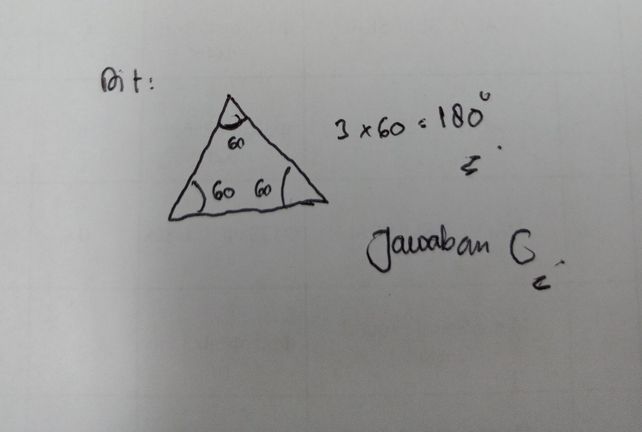 Dit:
60
60 60
3 x 60 = 180°
Jawaban C